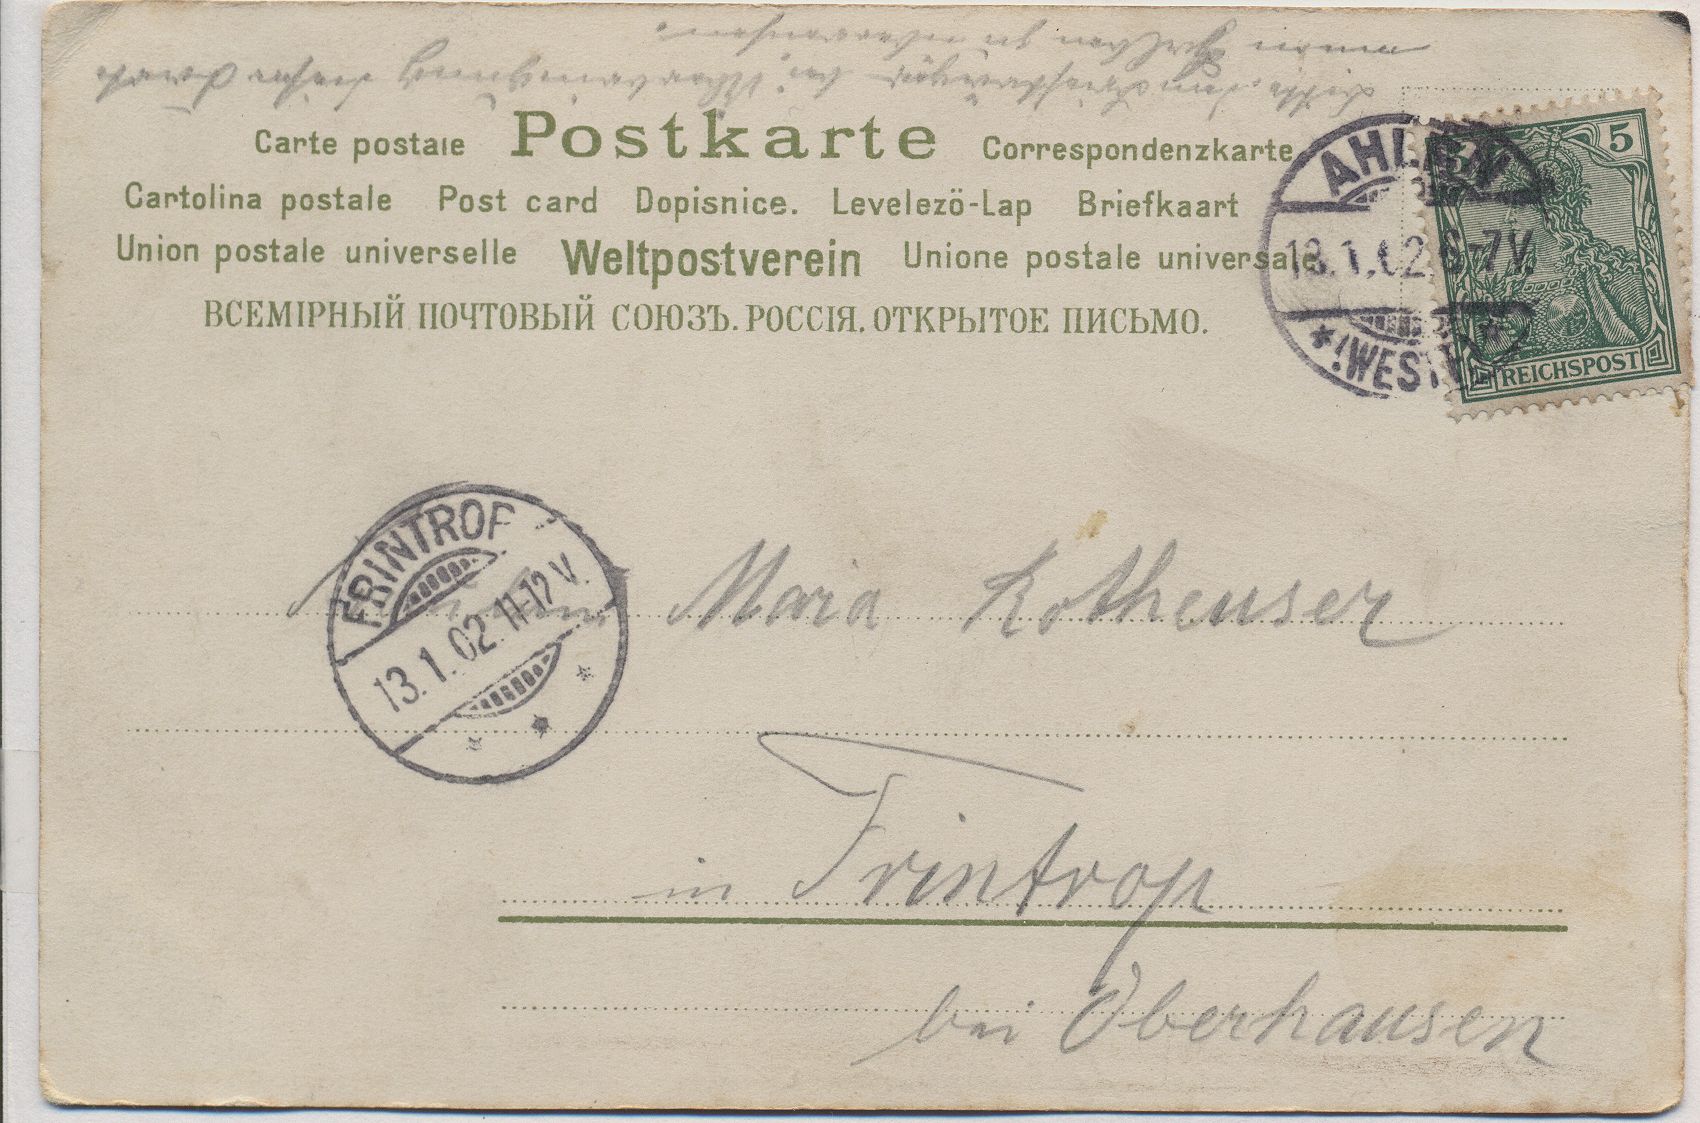 Carte postale Postkarte Correspondenzkarte
Cartolina postale Post card Dopisnice. Levelezö-Lap Briefkaart
Union postale universelle Weltpostverein Unione postale universale
ВСЕМІРНЫЙ ПОЧТОВЫЙ СОЮЗЪ. РОССІЯ. ОТКРЫТОЕ ПИСЬМО.
AHLEN
13.1.02.6-7V.
*(WESTF.)*
5
REICHSPOST
FRINTROP
13.1.02.11-12V.
* * *
Mara Rotheuser
in Frintrop
bei Oberhausen